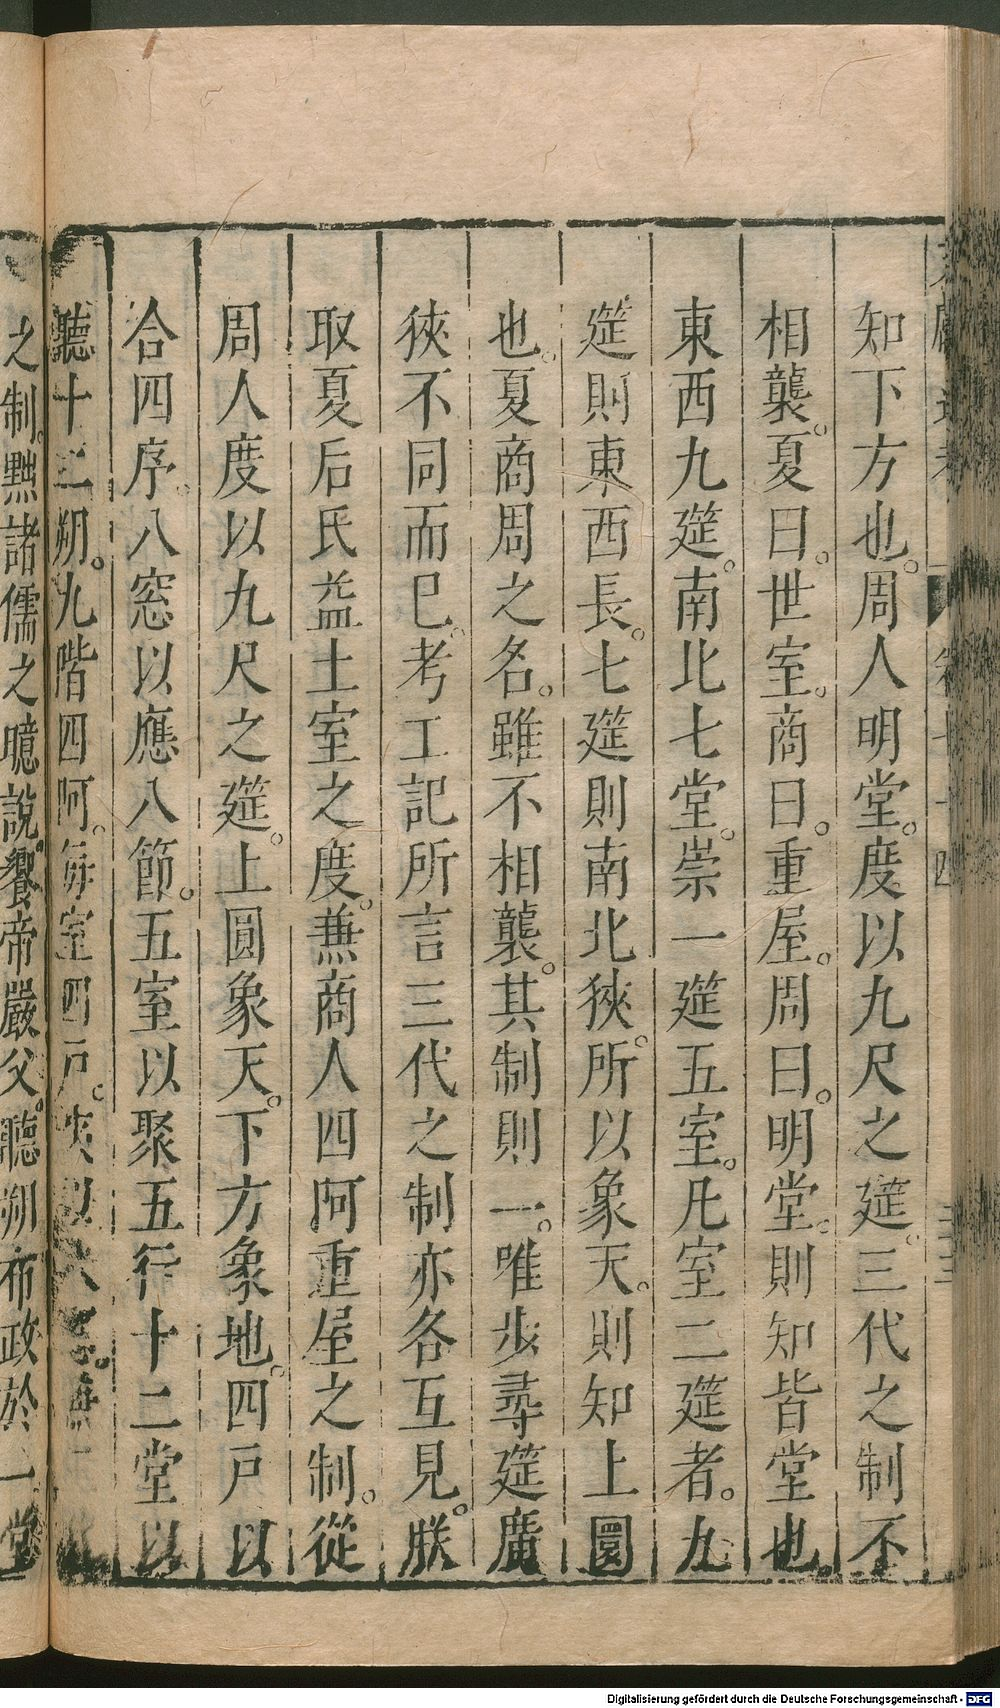 知下方也。周人明堂。度以九尺之筵。三代之制不
相襲。夏曰。世室。商曰。重屋。周曰。明堂。則知皆堂也。
東西九筵。南北七堂。崇一筵五室。凡室二筵者。九
筵則東西長。七筵則南北狹。所以象天。則知上圜
也。夏商周之名。雖不相襲。其制則一。唯步尋筵廣
狹不同而已。考工記所言三代之制亦各互見。朕
取夏后氏益土室之度。兼商人四阿重屋之制。從
周人度以九尺之筵。上圓象天。下方象地。四戶以
合四序。八窓以應八節。五室以聚五行十二堂以
聽十二朔。九階四阿。每室四戶。夾以八
之制。黜諸儒之臆說。饗帝嚴父。聽朔布政於一堂
Digitalisierung gefördert durch die Deutsche Forschungsgemeinschaft - DFG